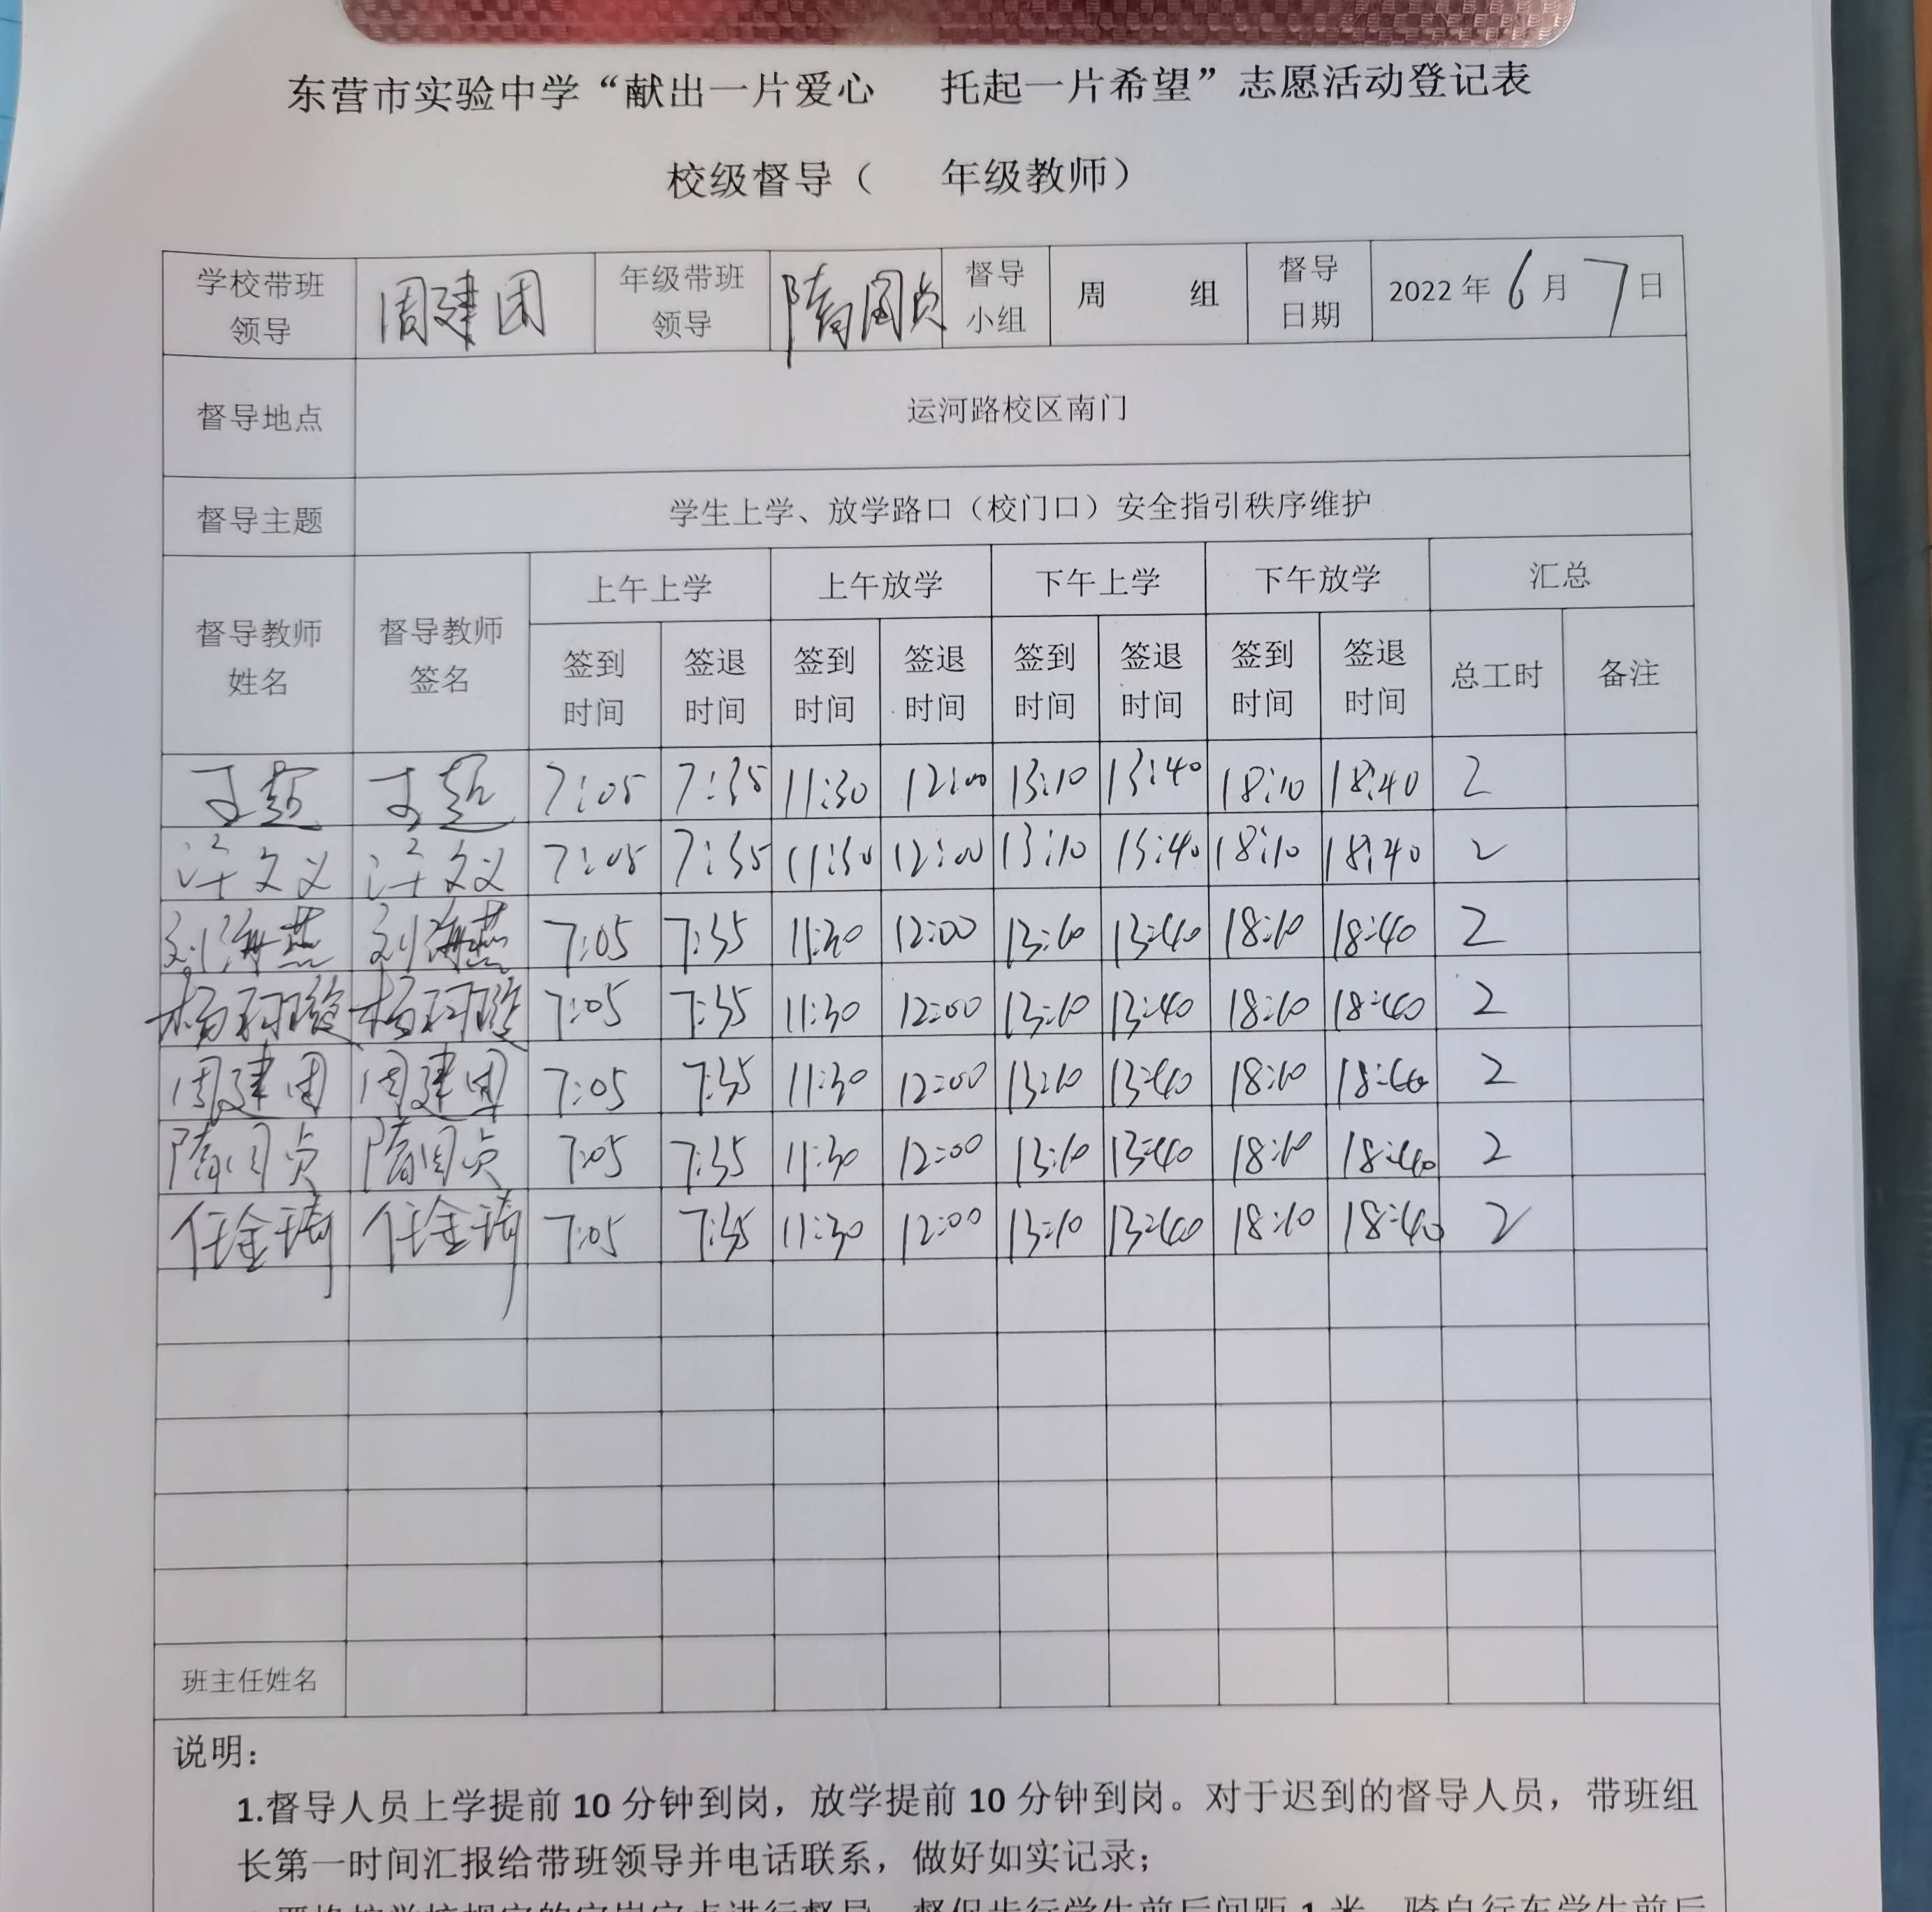 东营市实验中学“献出一片爱心 托起一片希望”志愿活动登记表
校级督导（ 年级教师）
学校带班领导 周建团 年级带班领导 隋国贞 督导小组 周 组 督导日期 2022年6月7日
督导地点 运河路校区南门
督导主题 学生上学、放学路口（校门口）安全指引秩序维护
督导教师姓名 督导教师签名 上午上学 上午放学 下午上学 下午放学 汇总
签到时间 签退时间 签到时间 签退时间 签到时间 签退时间 签到时间 签退时间 总工时 备注
7:05 7:35 11:30 12:00 13:10 13:40 18:10 18:40 2
汪文义 汪文义 7:05 7:35 11:30 12:00 13:10 13:40 18:10 18:40 2
刘海燕 刘海燕 7:05 7:35 11:30 12:00 13:10 13:40 18:10 18:40 2
杨 杨 7:05 7:35 11:30 12:00 13:10 13:40 18:10 18:40 2
周建团 周建团 7:05 7:35 11:30 12:00 13:10 13:40 18:10 18:40 2
隋国贞 隋国贞 7:05 7:35 11:30 12:00 13:10 13:40 18:10 18:40 2
任金 任金 7:05 7:35 11:30 12:00 13:10 13:40 18:10 18:40 2
班主任姓名
说明：
1.督导人员上学提前10分钟到岗，放学提前10分钟到岗。对于迟到的督导人员，带班组
长第一时间汇报给带班领导并电话联系，做好如实记录；
严格按学校规定的定岗定点进行督导，督促步行学生前后间距1米，骑自行车学生前后